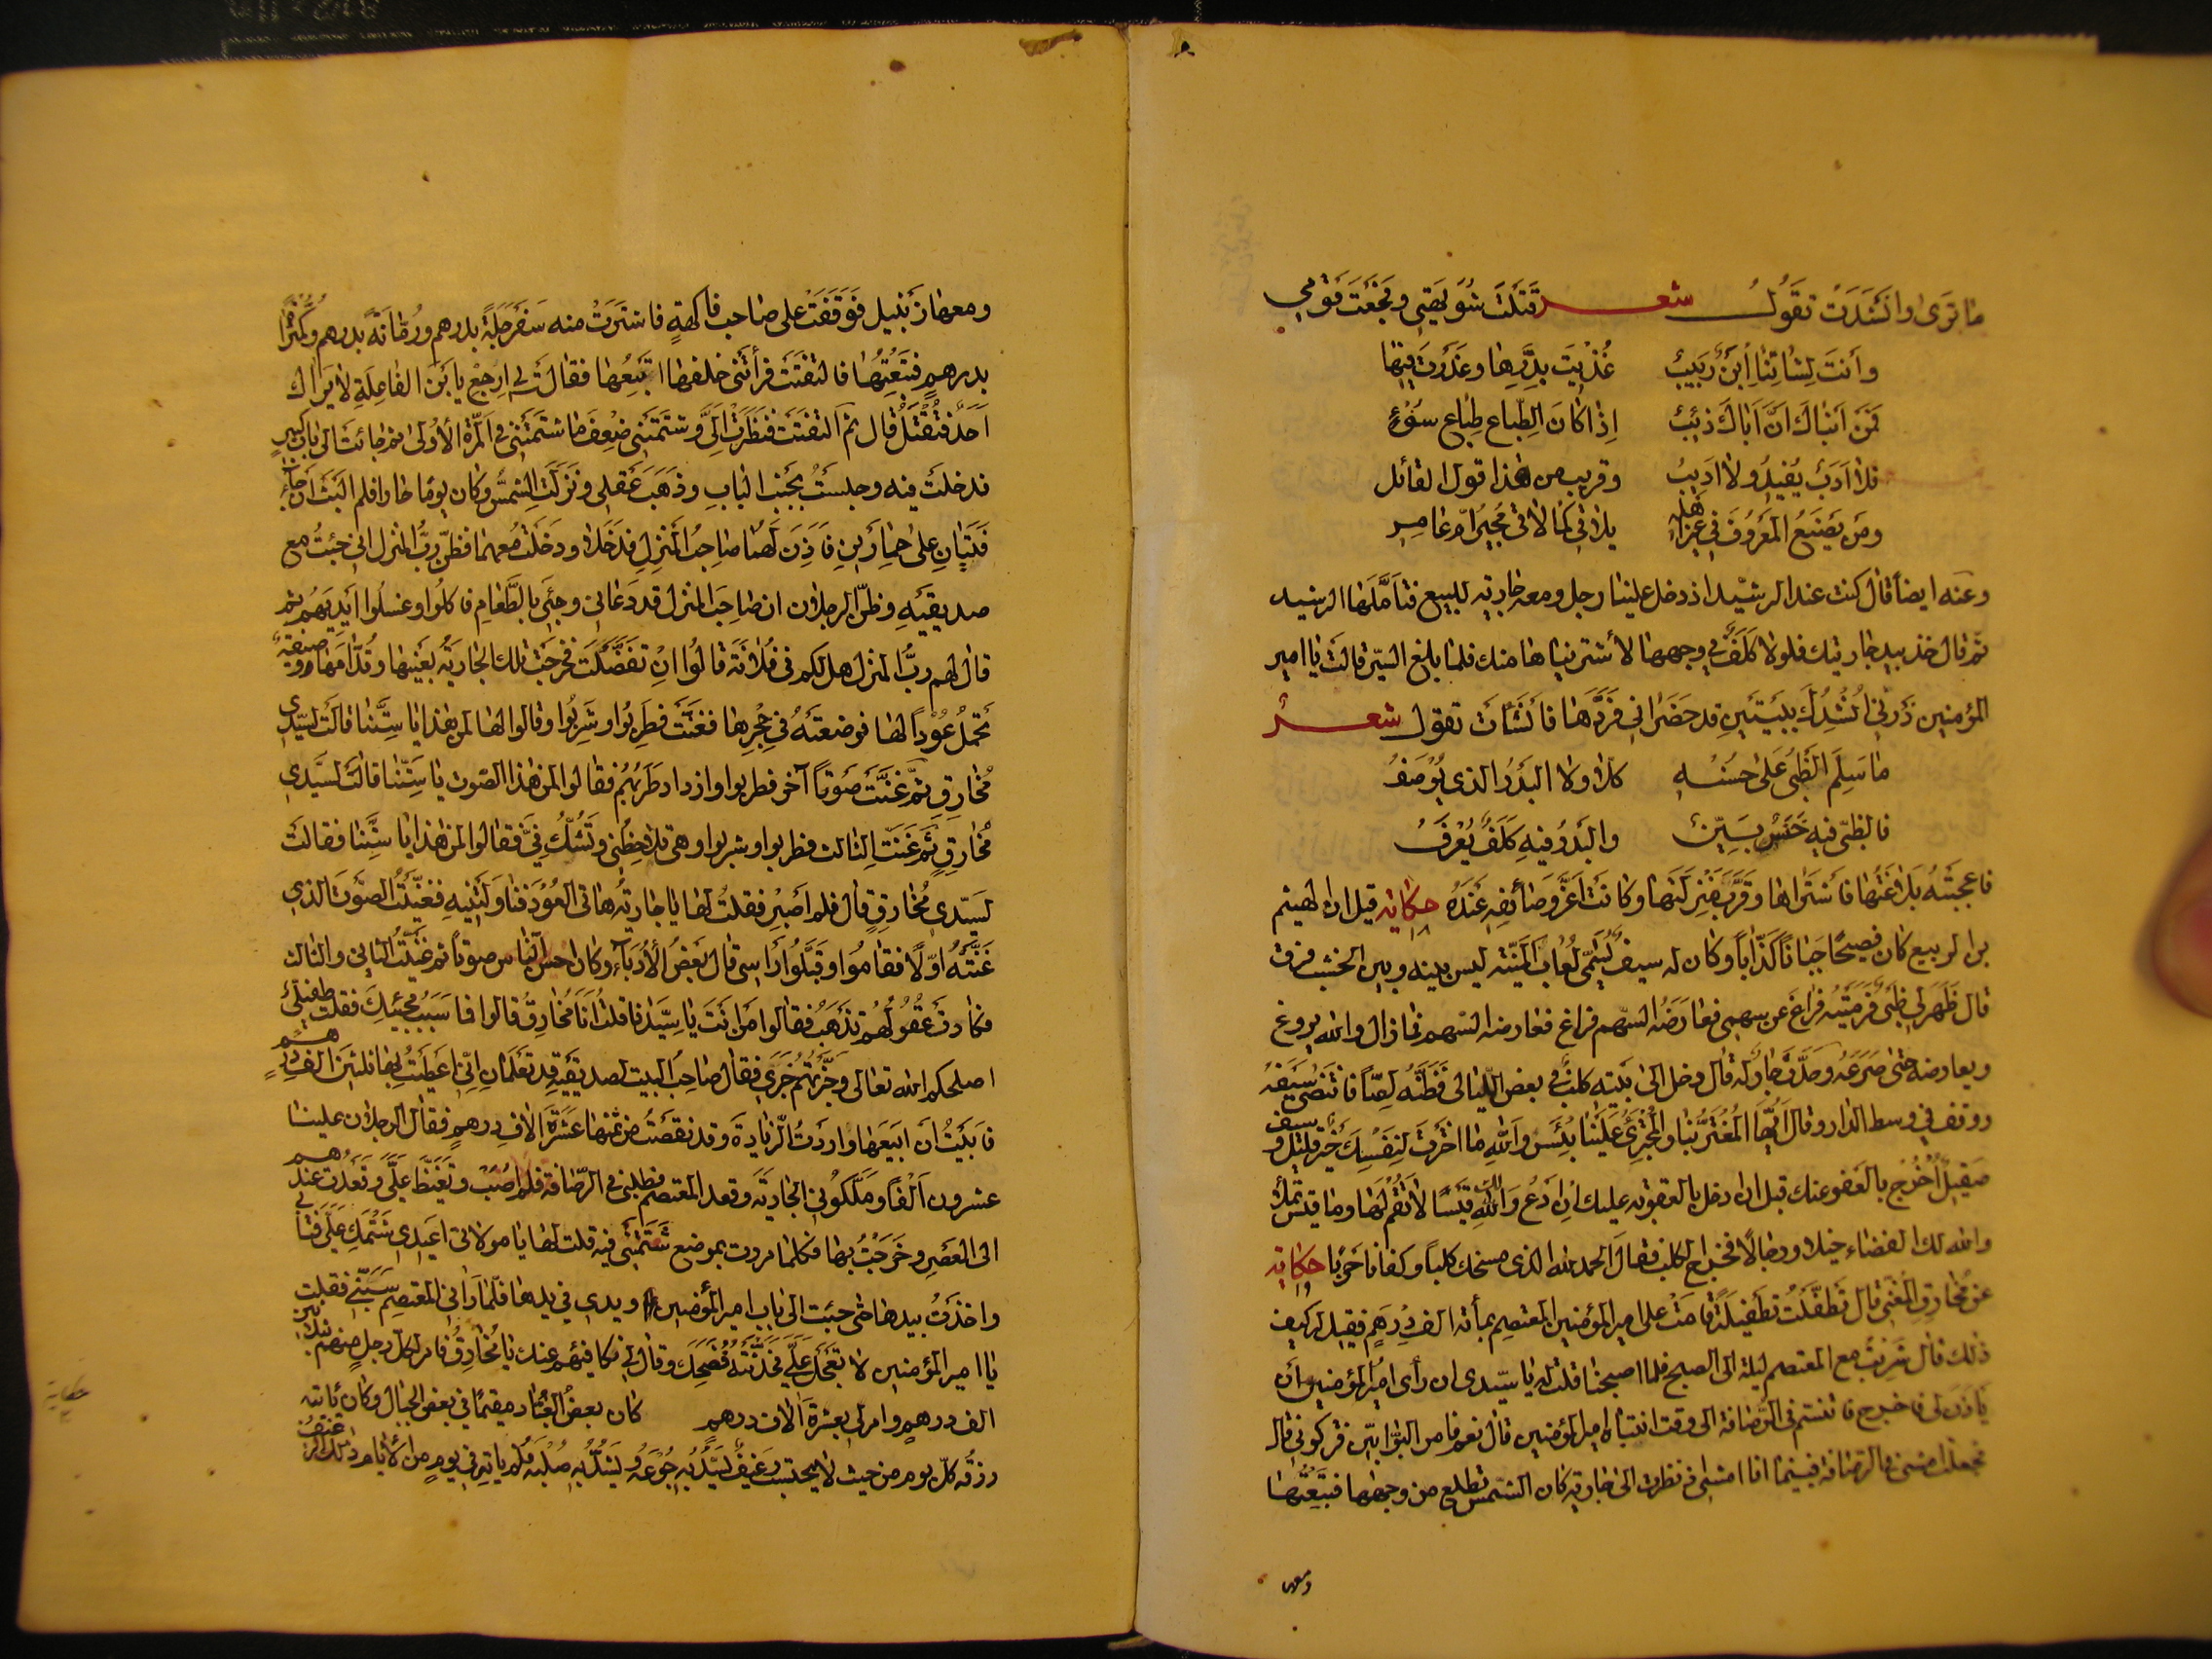 ما ترى وانشدت تقول شعر قتلت شويهتي وفجعت قومي
وانت لشاتنا ابن ربيب غذيت بدرها وغدرت فيها
فمن انباك ان اباك ذئب اذا كان الطباع طباع سوء
فلا ادب يفيد ولا اديب وقريب من هذا قول القائل
ومن يصنع المعروف في غير اهله يلاقي كما لاقى مجير ام عامر
وعنه ايضا قال كنت عند الرشيد اذ دخل علينا رجل ومعه جارية للبيع فتاملها الرشيد
ثم قال خذ بيد جاريتك فلولا كلف في وجهها لاشتريناها منك فلما بلغ الستر قالت يا امير
المؤمنين ذرني انشدك بيتين قد حضراني فردها فانشات تقول شعر
ما سلم الظبي على حسنه كلا ولا البدر الذي يوصف
فالظبي فيه خنس بين والبدر فيه كلف يعرف
فاعجبته بلاغتها فاشتراها وقرب منزلتها وكانت اعز وصائفه عنده حكاية قيل ان الهيثم
بن الربيع كان فصيحا جبانا كذابا وكان له سيف يسمى لعاب المنية ليس بينه وبين الخشب فرق
قال ظهر لي ظبي فرميته فراغ عن سهمي فعارضه السهم فراغ فعارضه السهم فما زال والله يروغ
ويعارضه حتى صرعه وحدث جار له قال دخل الى بيته كلب في بعض الليالي فظنه لصا فانتضى سيفه
ووقف في وسط الدار وقال ايها المغتر بنا والمجترئ علينا بئس والله ما اخترت لنفسك خير قليل وسيف
صقيل اخرج بالعفو عنك قبل ان ادخل بالعقوبة عليك ان ادع والله لك قيسا لا تقم لها وما قيس تملا
والله لك الفضاء خيلا ورجالا فخرج الكلب فقال الحمد لله الذي مسخك كلبا وكفانا حربا حكاية
عن مخارق المغني قال تطفلت تطفيلة قامت على امير المؤمنين المعتصم بمائة الف درهم فقيل له كيف
ذلك قال شربت مع المعتصم ليلة الى الصبح فلما اصبحنا قلت له يا سيدي ان راى امير المؤمنين ان
ياذن لي فاخرج فاتنسم في الرصافة الى وقت انتباه امير المؤمنين قال نعم فامر البوابين فتركوني قال
فجعلت امشي في الرصافة فبينما انا امشي اذ نظرت الى جارية كان الشمس تطلع من وجهها فتبعتها
ومعها
ومعها زنبيل فوقفت على صاحب فاكهة فاشترت منه سفرجلة بدرهم ورمانة بدرهم وكمثراة
بدرهم فتبعتها فالتفتت فرأتني خلفها اتبعها فقالت لي ارجع يا بن الفاعلة لا يراك
احد فتقتل قال ثم التفتت فنظرت الي وشتمتني ضعف ما شتمتني في المرة الاولى ثم جائت الى باب كبير
فدخلت فيه وجلست بجنب الباب وذهب عقلي ونزلت الشمس وكان يوما حارا فلم البث ان جاء
فتيان على حمارين فاذن لهما صاحب المنزل فدخلا ودخلت معهما فظن رب المنزل اني جئت مع
صديقيه وظن الرجلان ان صاحب المنزل قد دعاني وجئ بالطعام فاكلوا وغسلوا ايديهم ثم
قال لهم رب المنزل هل لكم في فلانة قالوا ان تفضلت فخرجت تلك الجارية بعينها وقدامها وصيفة
تحمل عودا لها فوضعته في حجرها فغنت فطربوا وشربوا وقالوا لها لمن هذا يا ستنا قالت لسيدي
مخارق ثم غنت صوتا آخر فطربوا وازداد طربهم فقالوا لمن هذا الصوت يا ستنا قالت لسيدي
مخارق ثم غنت الثالث فطربوا وشربوا وهي تلاحظني وتشك في فقالوا لمن هذا يا ستنا فقالت
لسيدي مخارق قال فلم اصبر فقلت لها يا جارية هاتي العود فناولتنيه فغنيت الصوت الذي
غنته اولا فقاموا وقبلوا راسي قال بعض الأدباء وكان احسن الناس صوتا ثم غنيت الثاني والثالث
فكادت عقولهم تذهب فقالوا من انت يا سيدنا قلت انا مخارق قالوا فما سبب مجيئك فقلت طفيلي
اصلحكم الله تعالى وخبرتهم خبري فقال صاحب البيت لصديقيه قد تعلمان اني اعطيت بها ثلثين الف درهم
فابيت ان ابيعها واردت الزيادة وقد نقصت من ثمنها عشرة الاف درهم فقال الرجلان علينا
عشرون الفا وملكوني الجارية وقعد المعتصم فطلبني في الرصافة فلم اصب وتغيظ علي وقعدت عندهم
الى العصر وخرجت بها فكلما مررت بموضع شتمتني فيه قلت لها يا مولاتي اعيدي شتمك علي فتابى
واخذت بيدها حتى جئت الى باب امير المؤمنين ويدي في يدها فلما رآني المعتصم سبني فقلت
يا امير المؤمنين لا تعجل علي فحدثته فضحك وقال لي نكافئهم عنك يا مخارق فامر لكل رجل منهم بثلاثين
الف درهم وامر لي بعشرة الاف درهم كان بعض العباد مقيما في بعض الجبال وكان ياتيه
رزقه كل يوم من حيث لا يحتسب رغيف يسد به جوعه ويشد به صلبه فلم ياته في يوم من الأيام ذلك الرغيف
حكاية